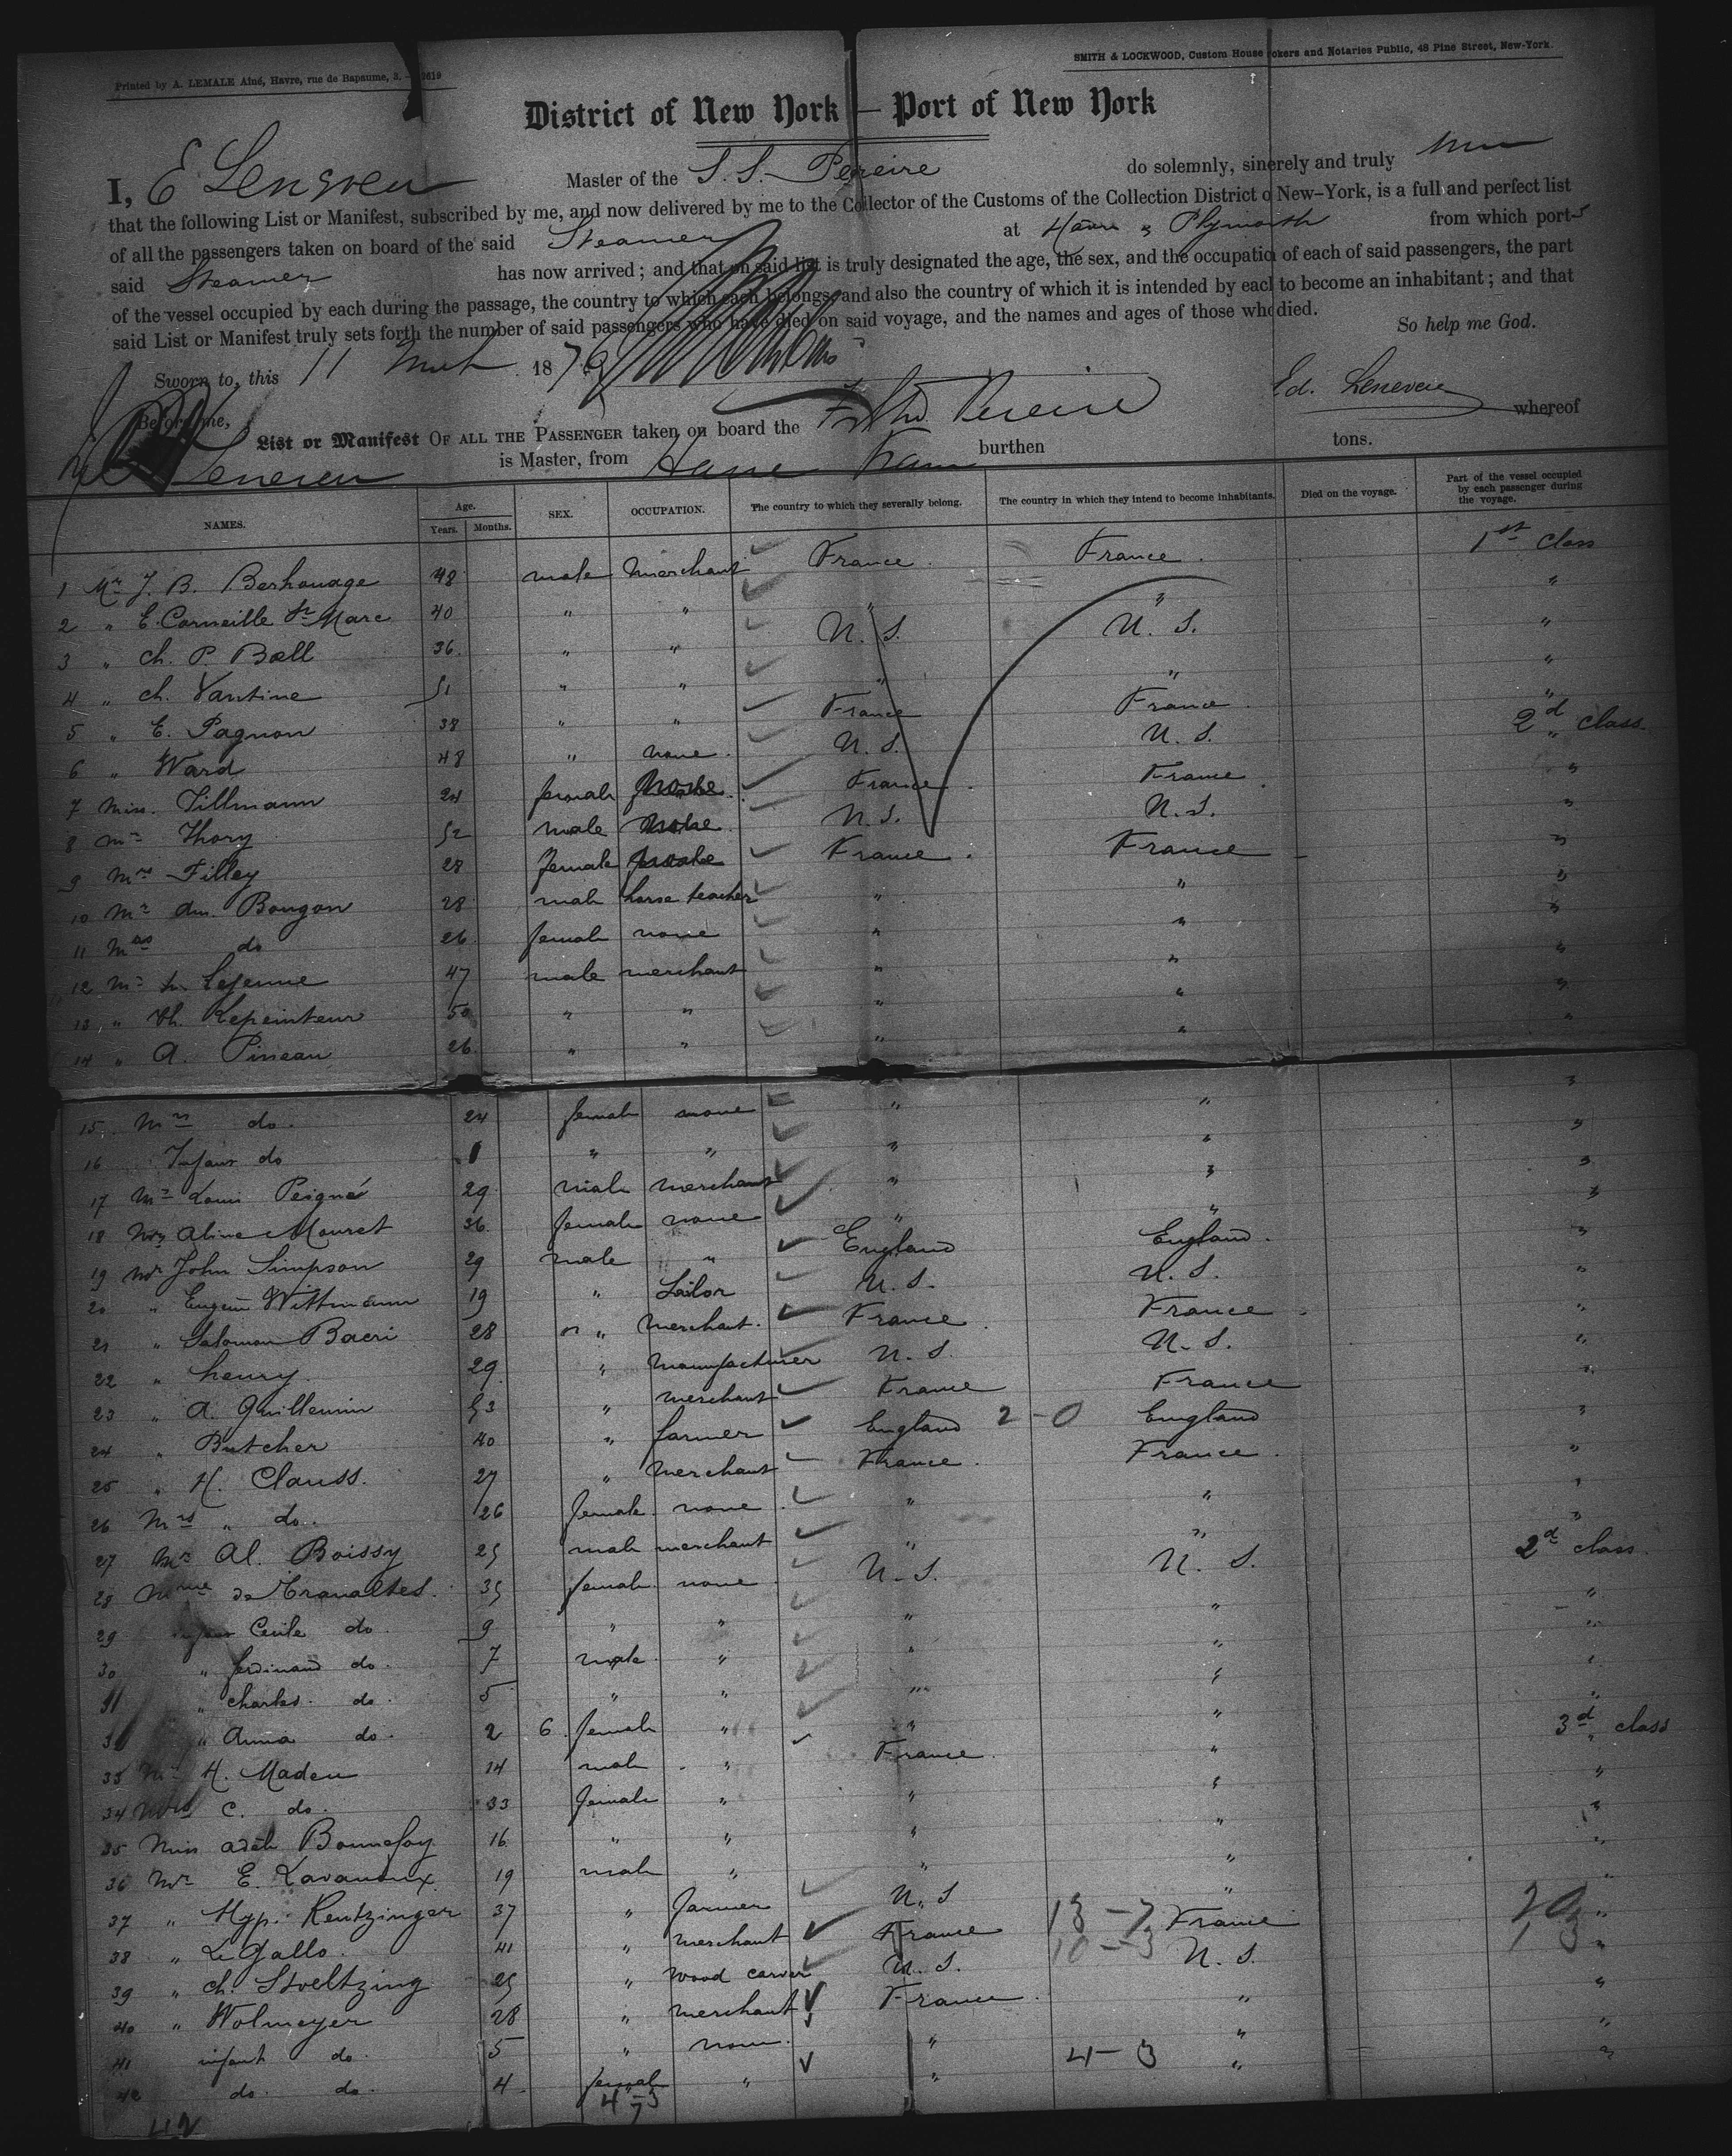 Printed by A. LEMALE Aîné, Havre, rue de Bapaume, 3. — 2619
SMITH & LOCKWOOD, Custom House okers and Notaries Public, 48 Pine Street, New-York.
District of New York — Port of New York
I, E Leneveu Master of the S. S. Pereire do solemnly, sincerely and truly
that the following List or Manifest, subscribed by me, and now delivered by me to the Collector of the Customs of the Collection District o New-York, is a full and perfect list
of all the passengers taken on board of the said Steamer at Havre & Plymouth from which port
said Steamer has now arrived; and that on said list is truly designated the age, the sex, and the occupatio of each of said passengers, the part
of the vessel occupied by each during the passage, the country to which each belongs, and also the country of which it is intended by eacl to become an inhabitant; and that
said List or Manifest truly sets forth the number of said passengers who have died on said voyage, and the names and ages of those wh died.
So help me God.
Sworn to, this 11 1876
Ed. Leneveu
Before me,
List or Manifest OF ALL THE PASSENGER taken on board the Pereire whereof
Leneveu is Master, from Havre burthen tons.
NAMES. Age. Years. Months. SEX. OCCUPATION. The country to which they severally belong. The country in which they intend to become inhabitants. Died on the voyage. Part of the vessel occupied by each passenger during the voyage.
1 Mr J. B. Berhouage 48 male Merchant France France 1st class
2 " E. Corneille St Marc 40 " " " " "
3 " Ch. P. Bell 36 " " U. S. U. S. "
4 " Ch. Vantine 51 " " " " "
5 " E. Pagnon 38 " " France France "
6 " Ward 48 " none U. S. U. S. 2d class
7 Miss Tillmann 24 female none France France "
8 Mr Thory 52 male none U. S. U. S. "
9 Mrs Filley 28 female France France "
10 Mr Am. Bougon 28 male horse teacher " " "
11 Mrs do 26 female none " " "
12 Mr Lejeune 47 male merchant " " "
13 " Ch. Repeinteur 50 " " " " "
14 " A. Pineau 26 " " " " "
15 Mrs do. 24 female none " " "
16 Infant do 1 " " " " "
17 Mr Louis Peigné 29 male merchant " " "
18 Mrs Aline Mouret 36 female none " " "
19 Mr John Simpson 29 male " England England "
20 " Eugene Wittmann 19 " Sailor U. S. U. S. "
21 " Salomon Bacri 28 " Merchant France France "
22 " henry 29 " Manufacturer U. S. U. S. "
23 " A. Guillemin 53 " merchant France France "
24 " Butcher 40 " farmer England 2-0 England "
25 " H. Clauss. 27 " Merchant France France "
26 Mrs " do. 26 female none " " "
27 Mr Al. Boissy 25 male merchant " " "
28 Mme de Cranaltes 35 female none U. S. U. S. 2d class
29 Cecile do 9 " " " " "
30 " ferdinand do. 7 male " " " "
31 " Charles do. 5 " " " " "
" Anna do. 2 6 female " " " "
33 Mr H. Madeu 14 male " France " 3d class
34 Mrs C. do. 33 female " " " "
35 Miss Adèle Bonnefoy 16 " " " " "
36 Mr E. Lavanoux 19 male " " " "
37 " Hyp. Rentzinger 37 " farmer U. S. " "
38 " Le Gallo 41 " merchant France 13-7 France "
39 " Ch. Stoeltzing 25 " Wood carver U. S. 10-3 U. S. "
40 " Wolmeyer 28 " merchant France " "
41 infant do. 5 " none " " "
42 do. do. 4 female " " 4-3 " "
42